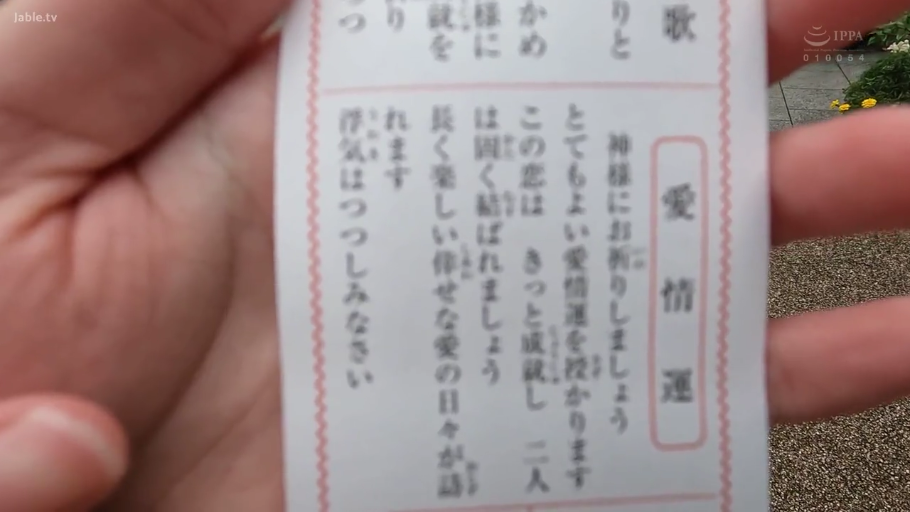 Jable.tv
IPPA
010054
歌
りと
かめ
様に
就を
り
つ
愛情運
神様にお祈りしましょう
とてもよい愛情運を授かります
この恋は きっと成就し 二人
は固く結ばれましょう
長く楽しい倖せな愛の日々が訪
れます
浮気はつつしみなさい